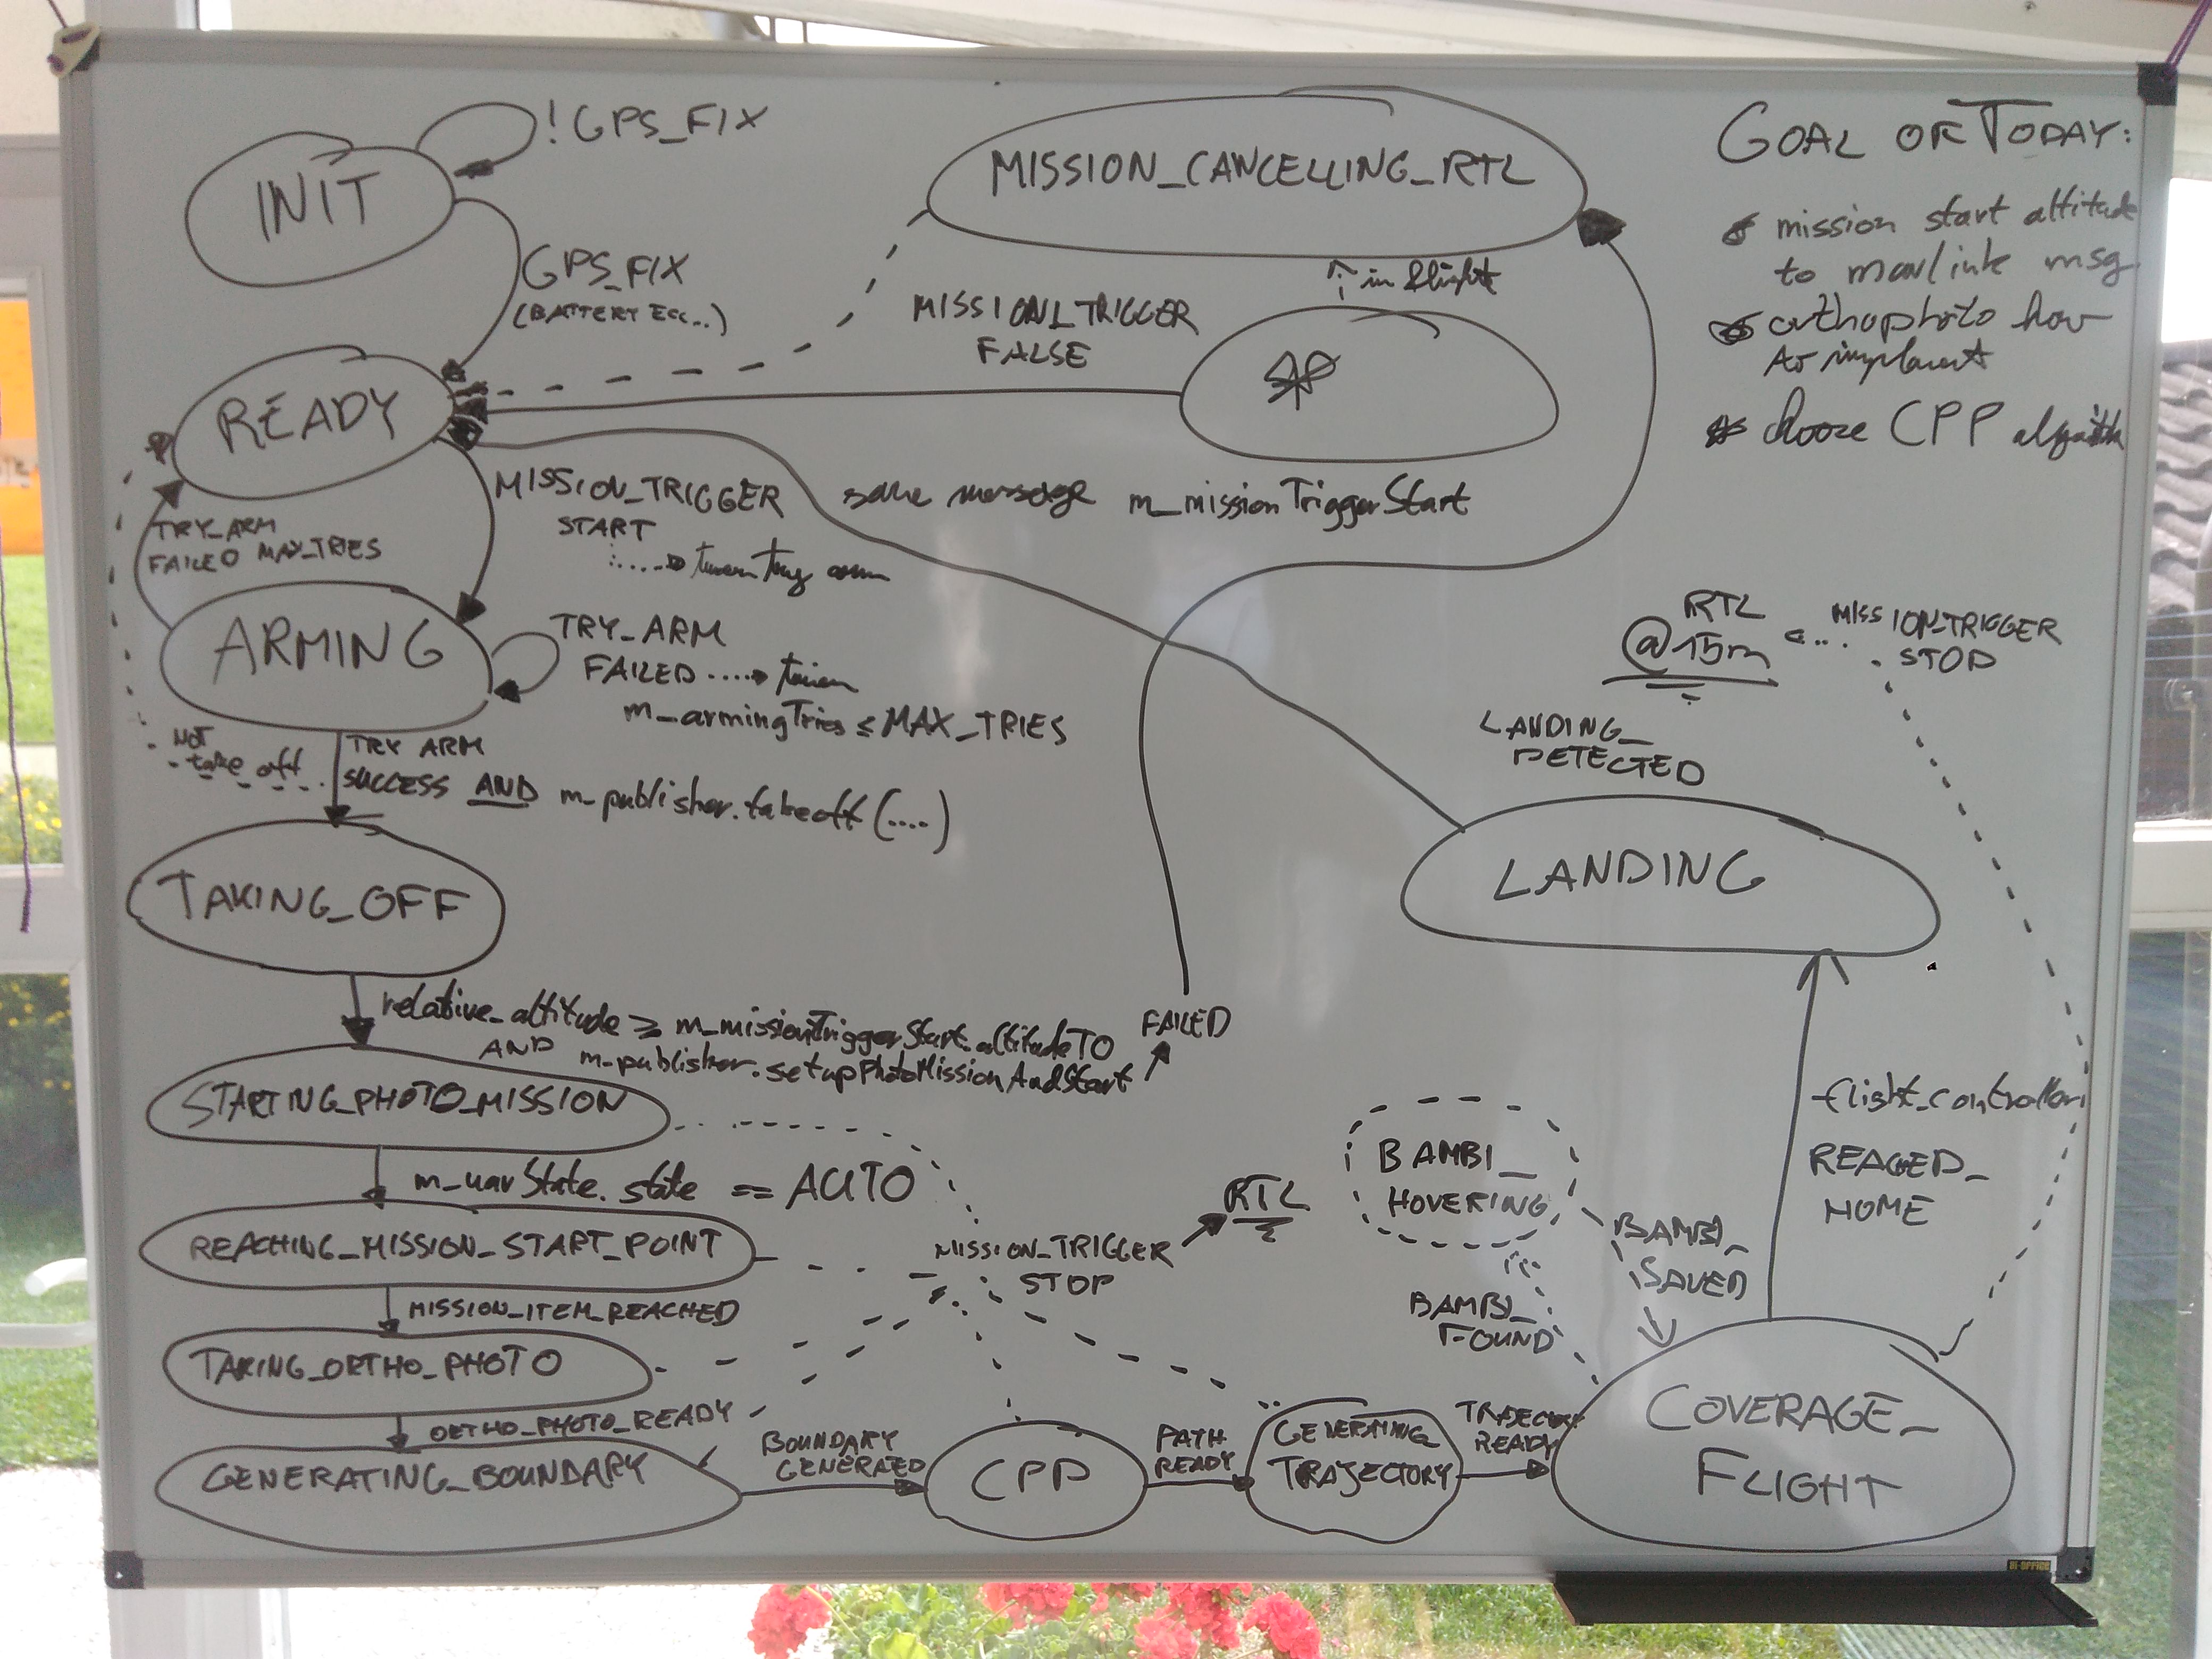 ! GPS_FIX
INIT
GPS_FIX
(BATTERY ECC..)
MISSION_CANCELLING_RTL
in flight
MISSION_TRIGGER
FALSE
GOAL OF TODAY:
mission start altitude
to mavlink msg
orthophoto how
to implement
choose CPP
READY
MISSION_TRIGGER
START
same message m_missionTriggerStart
TRY_ARM
FAILED MAX_TRIES
ARMING
TRY_ARM
FAILED
m_armingTries ≤ MAX_TRIES
RTL
@15m
MISSION_TRIGGER
STOP
NOT
take off
TRY ARM
SUCCESS AND m_publisher.takeoff(....)
LANDING_
DETECTED
LANDING
TAKING_OFF
relative_altitude ≥ m_missionTriggerStart.altitudeTO
AND m_publisher.setupPhotoMissionAndStart
FAILED
STARTING_PHOTO_MISSION
m_uavState.state == AUTO
REACHING_MISSION_START_POINT
MISSION_ITEM_REACHED
TAKING_ORTHO_PHOTO
ORTHO_PHOTO_READY
GENERATING_BOUNDARY
MISSION_TRIGGER
STOP
RTL
BAMBI_
HOVERING
BAMBI_
SAVED
BAMBI_
FOUND
flight_controller
REACED_
HOME
BOUNDARY
GENERATED
CPP
PATH
READY
GENERATING_
TRAJECTORY
READY
COVERAGE_
FLIGHT
BI-OFFICE